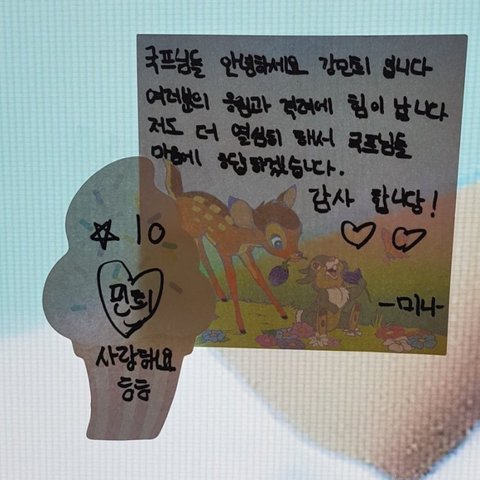 국프님들 안녕하세요 강민희 입니다
여러분의 응원과 격려에 힘이 납니다
저도 더 열심히 해서 국프님들
마음에 응답하겠습니다.
감사 합니당!
♡ ♡
-미나-
☆ 10
민희
사랑해요
등등